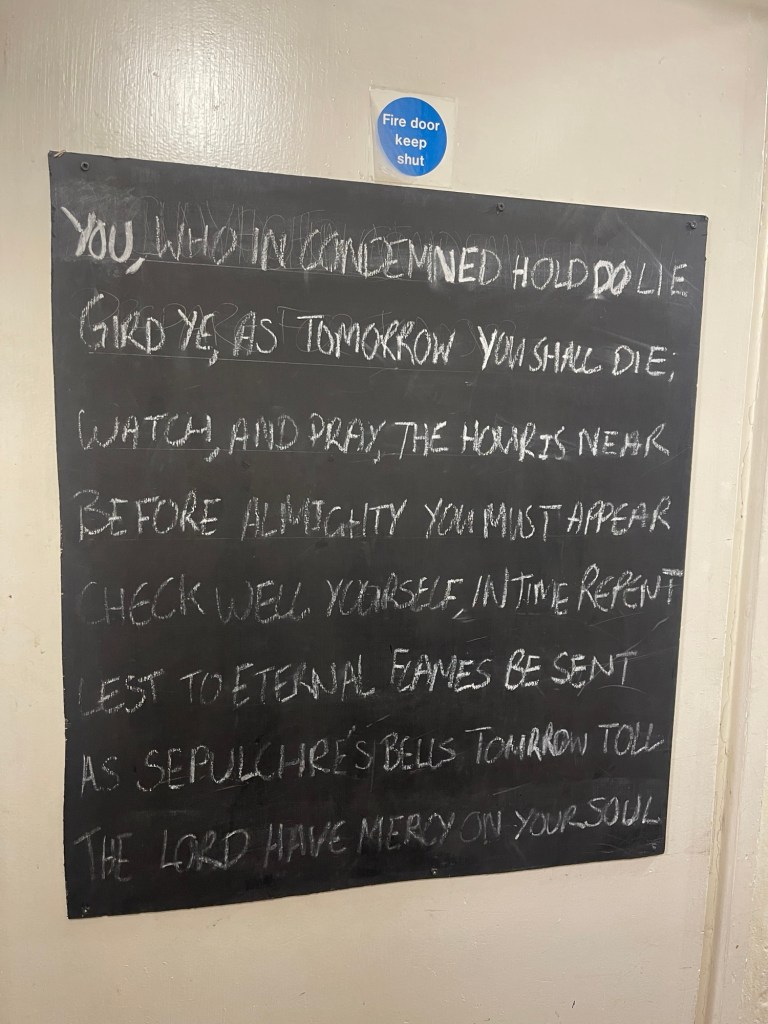 Fire door
keep
shut
YOU, WHO IN CONDEMNED HOLD DO LIE
GIRD YE, AS TOMORROW YOU SHALL DIE;
WATCH, AND PRAY, THE HOUR IS NEAR
BEFORE ALMIGHTY YOU MUST APPEAR
CHECK WELL YOURSELF, IN TIME REPENT
LEST TO ETERNAL FLAMES BE SENT
AS SEPULCHRE'S BELLS TOMRROW TOLL
THE LORD HAVE MERCY ON YOUR SOUL